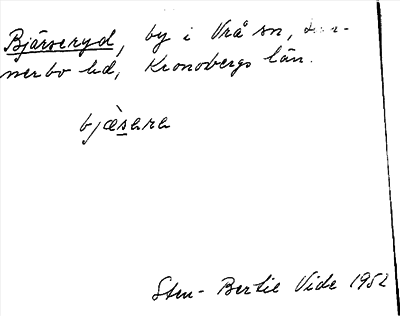 Bjärseryd, by i Vrå sn,
nerbo hd, Kronobergs län.
bjæ̀sara
Sten-Bertil Vide 1952